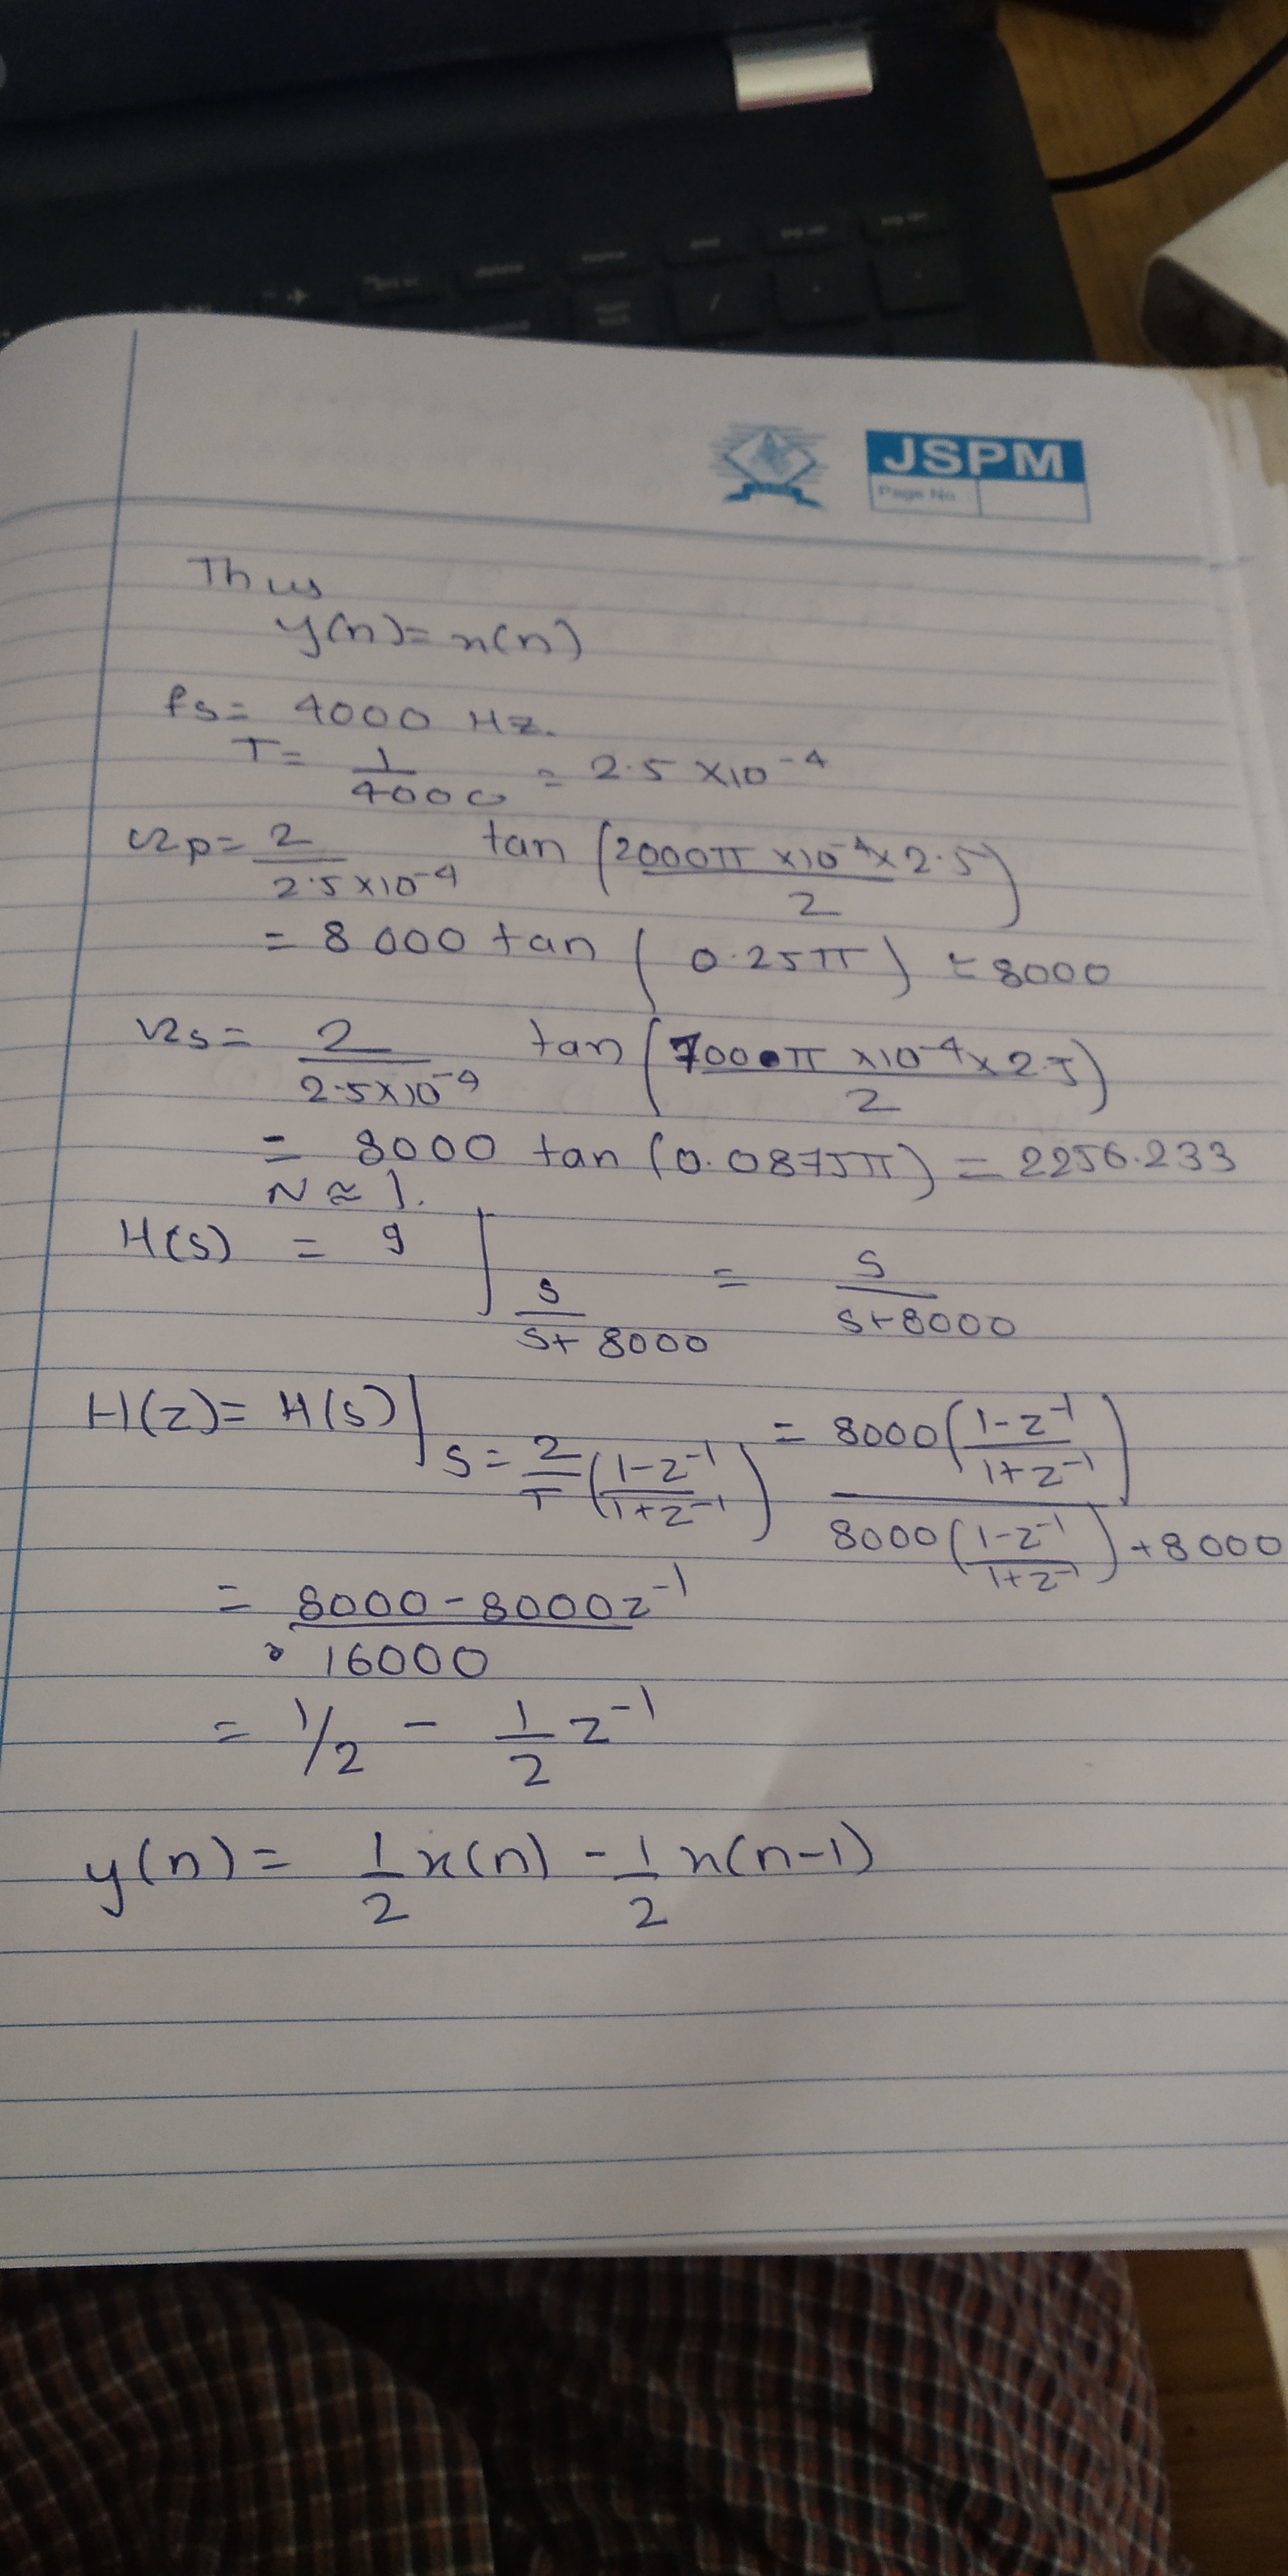 JSPM
Page No
Thus
y(n) = x(n)
fs = 4000 Hz.
T = 1/4000 = 2.5 × 10^-4
Ωp = 2/(2.5×10^-4) tan (2000π × 10^-4 × 2.5 / 2)
= 8000 tan (0.25π) = 8000
Ωs = 2/(2.5×10^-4) tan (7000π × 10^-4 × 2.5 / 2)
= 8000 tan (0.0875π) = 2256.233
N ≈ 1.
H(s) = 9 | s/(s+8000) = s/(s+8000)
H(z) = H(s) | s = 2/T (1-z^-1 / 1+z^-1) = 8000 (1-z^-1 / 1+z^-1) / 8000 (1-z^-1 / 1+z^-1) + 8000
= 8000 - 8000z^-1 / 16000
= 1/2 - 1/2 z^-1
y(n) = 1/2 x(n) - 1/2 x(n-1)